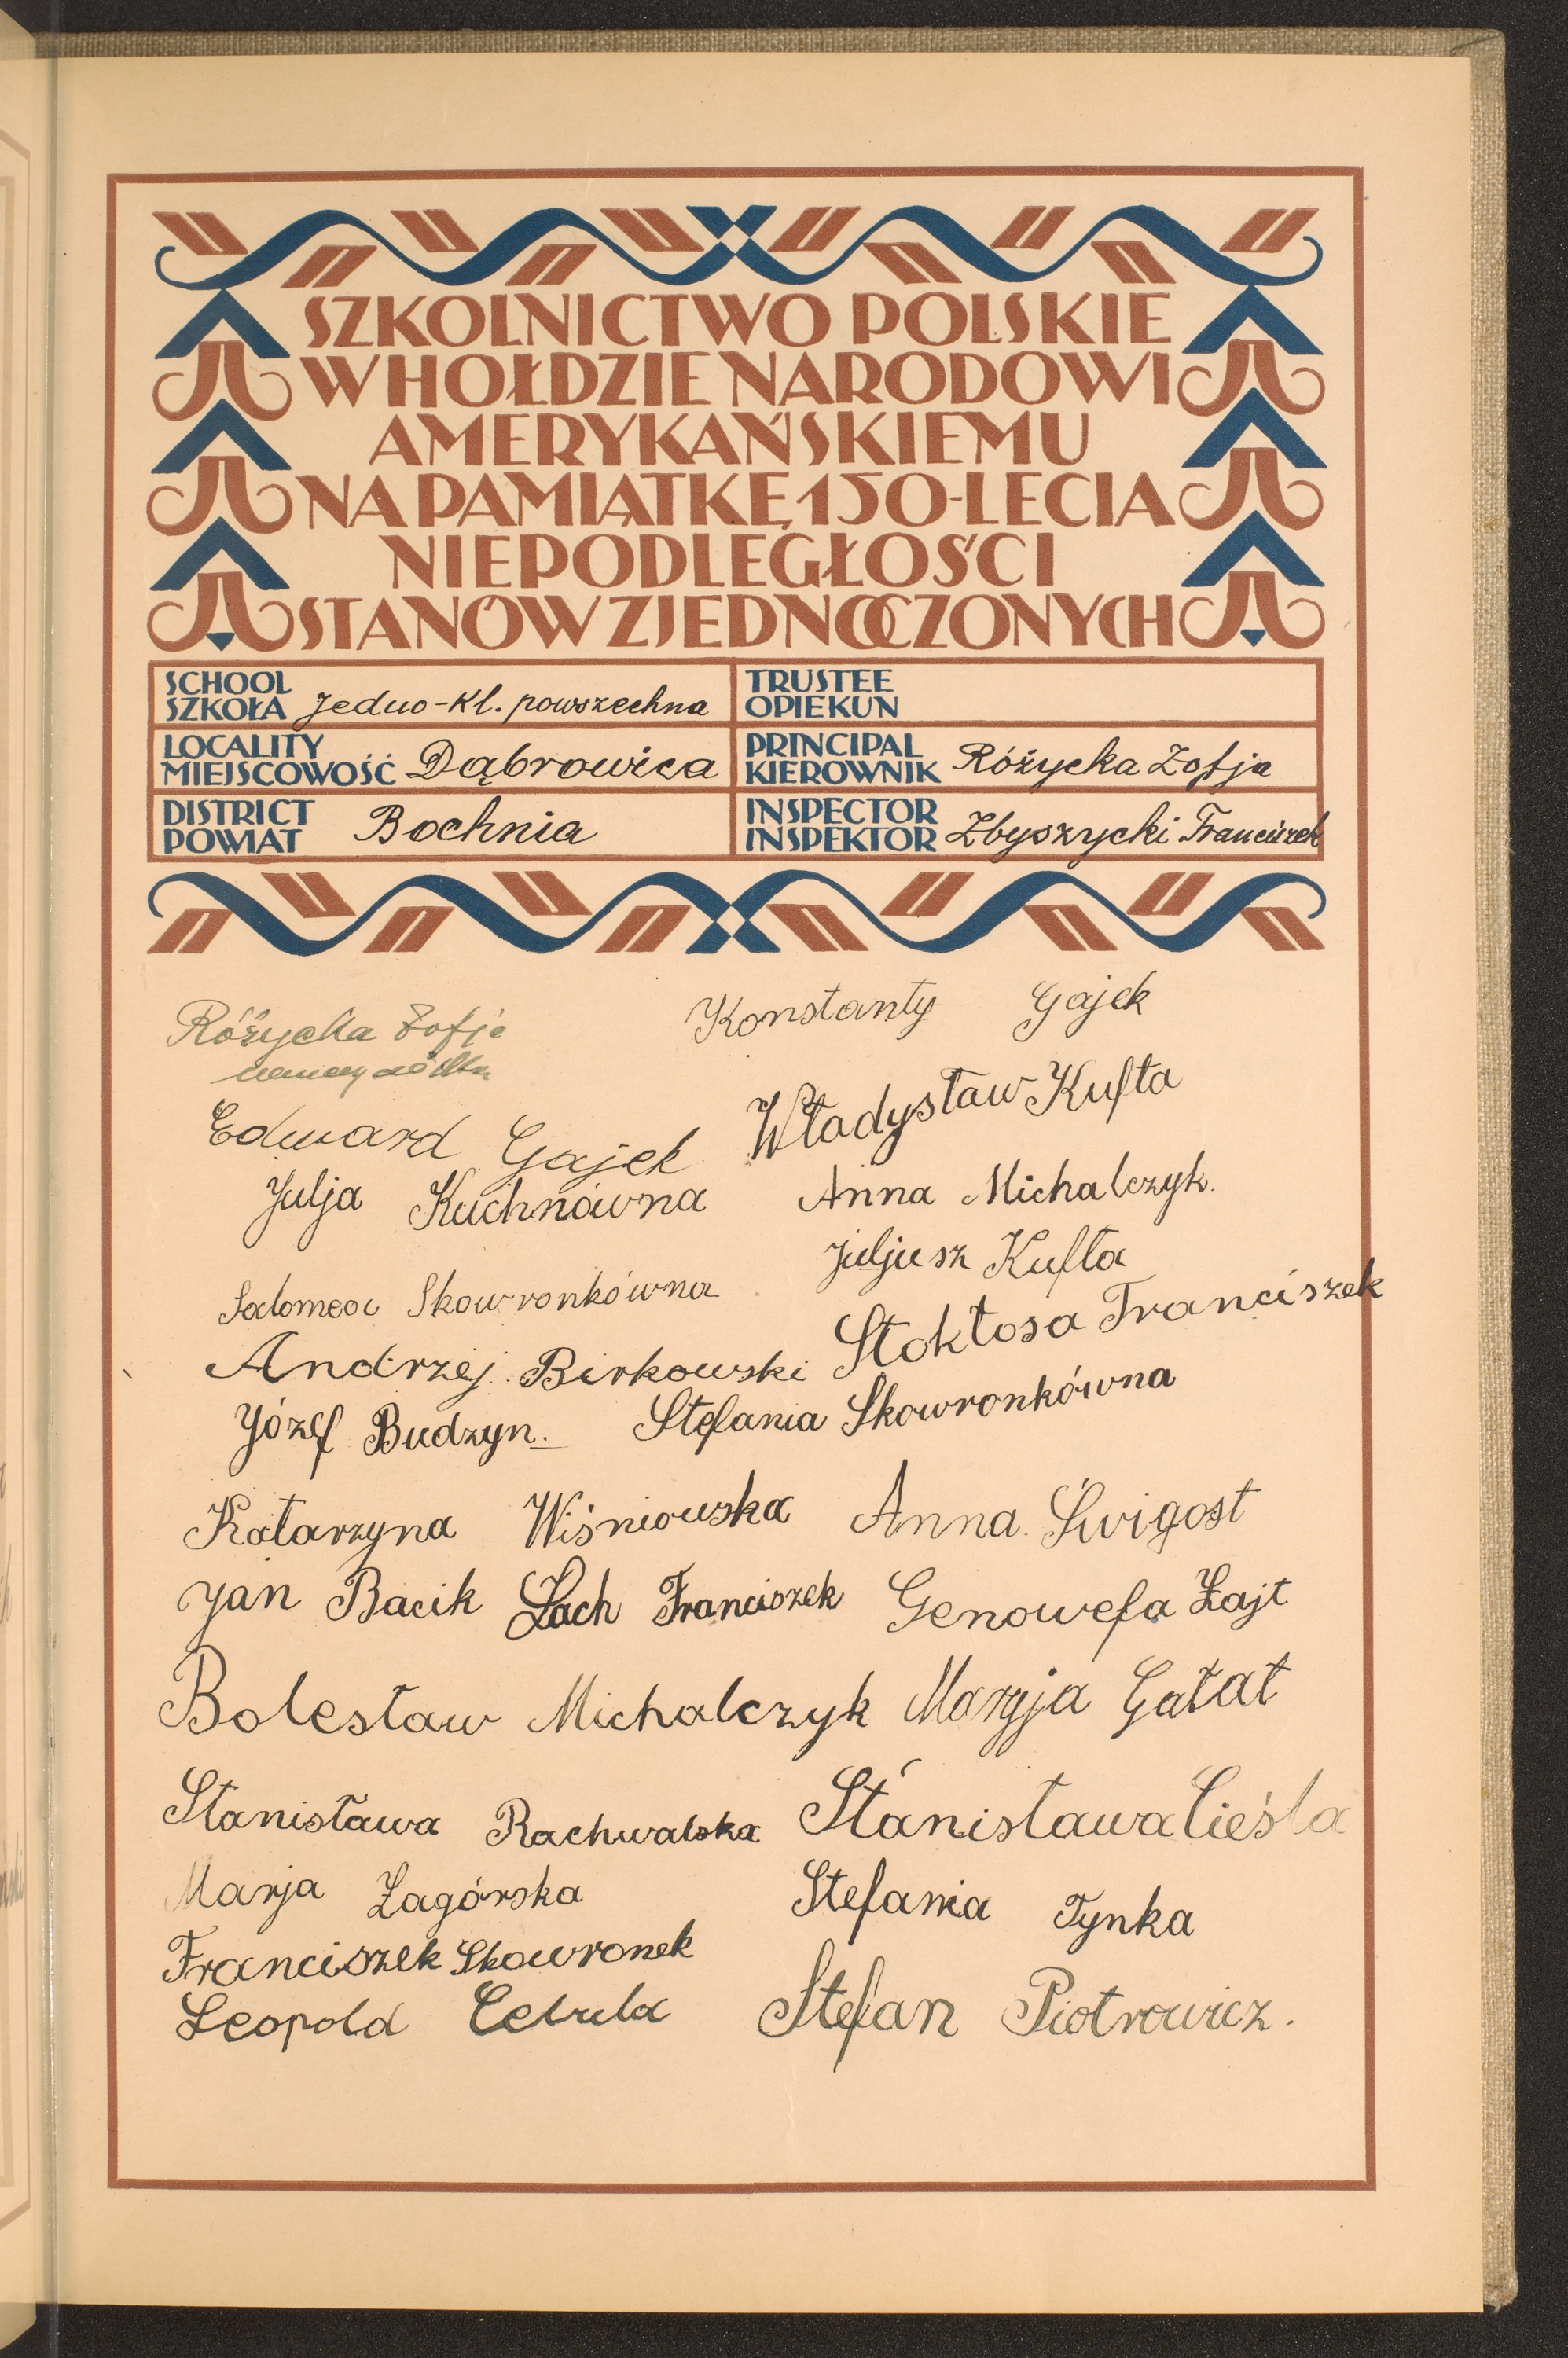 SZKOLNICTWO POLSKIE
W HOŁDZIE NARODOWI
AMERYKAŃSKIEMU
NA PAMIĄTKĘ 150-LECIA
NIEPODLEGŁOŚCI
STANÓW ZJEDNOCZONYCH
SCHOOL
SZKOŁA Jedno-kl. powszechna
TRUSTEE
OPIEKUN
LOCALITY
MIEJSCOWOŚĆ Dąbrowica
PRINCIPAL
KIEROWNIK Różycka Zofja
DISTRICT
POWIAT Bochnia
INSPECTOR
INSPEKTOR Zbyszycki Franciszek
Różycka Zofja
nauczycielka
Konstanty Gajek
Edward Gajek
Władysław Kufta
Julja Kuchnówna
Anna Michalczyk.
Juljusz Kufta
Salomea Skowronkówna
Stokłosa Franciszek
Andrzej Birkowski
Józef Budzyn.
Stefania Skowronkówna
Katarzyna Wiśniowska Anna Świgost
Jan Bacik Lach Franciszek Genowefa Zając
Bolesław Michalczyk Maryja Gałat
Stanisława Rachwalska Stanisława Cieśla
Marja Zagórska
Stefania Tynka
Franciszek Skowronek
Leopold Cebula
Stefan Piotrowicz.